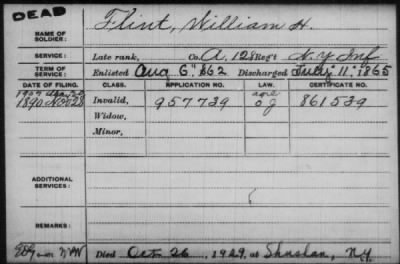 DEAD
NAME OF SOLDIER: Flint, William H.
SERVICE: Late rank, Co. A, 128 Reg't N.Y. Inf
TERM OF SERVICE: Enlisted Aug 6" 862 Discharged July 11, 1865
DATE OF FILING. CLASS. APPLICATION NO. LAW. CERTIFICATE NO.
1907
1890 Nov 28 Invalid, 957739 age o g 861539
Widow,
Minor,
ADDITIONAL SERVICES:
REMARKS:
Died Oct 26, 1929, at Shushan, N.Y.